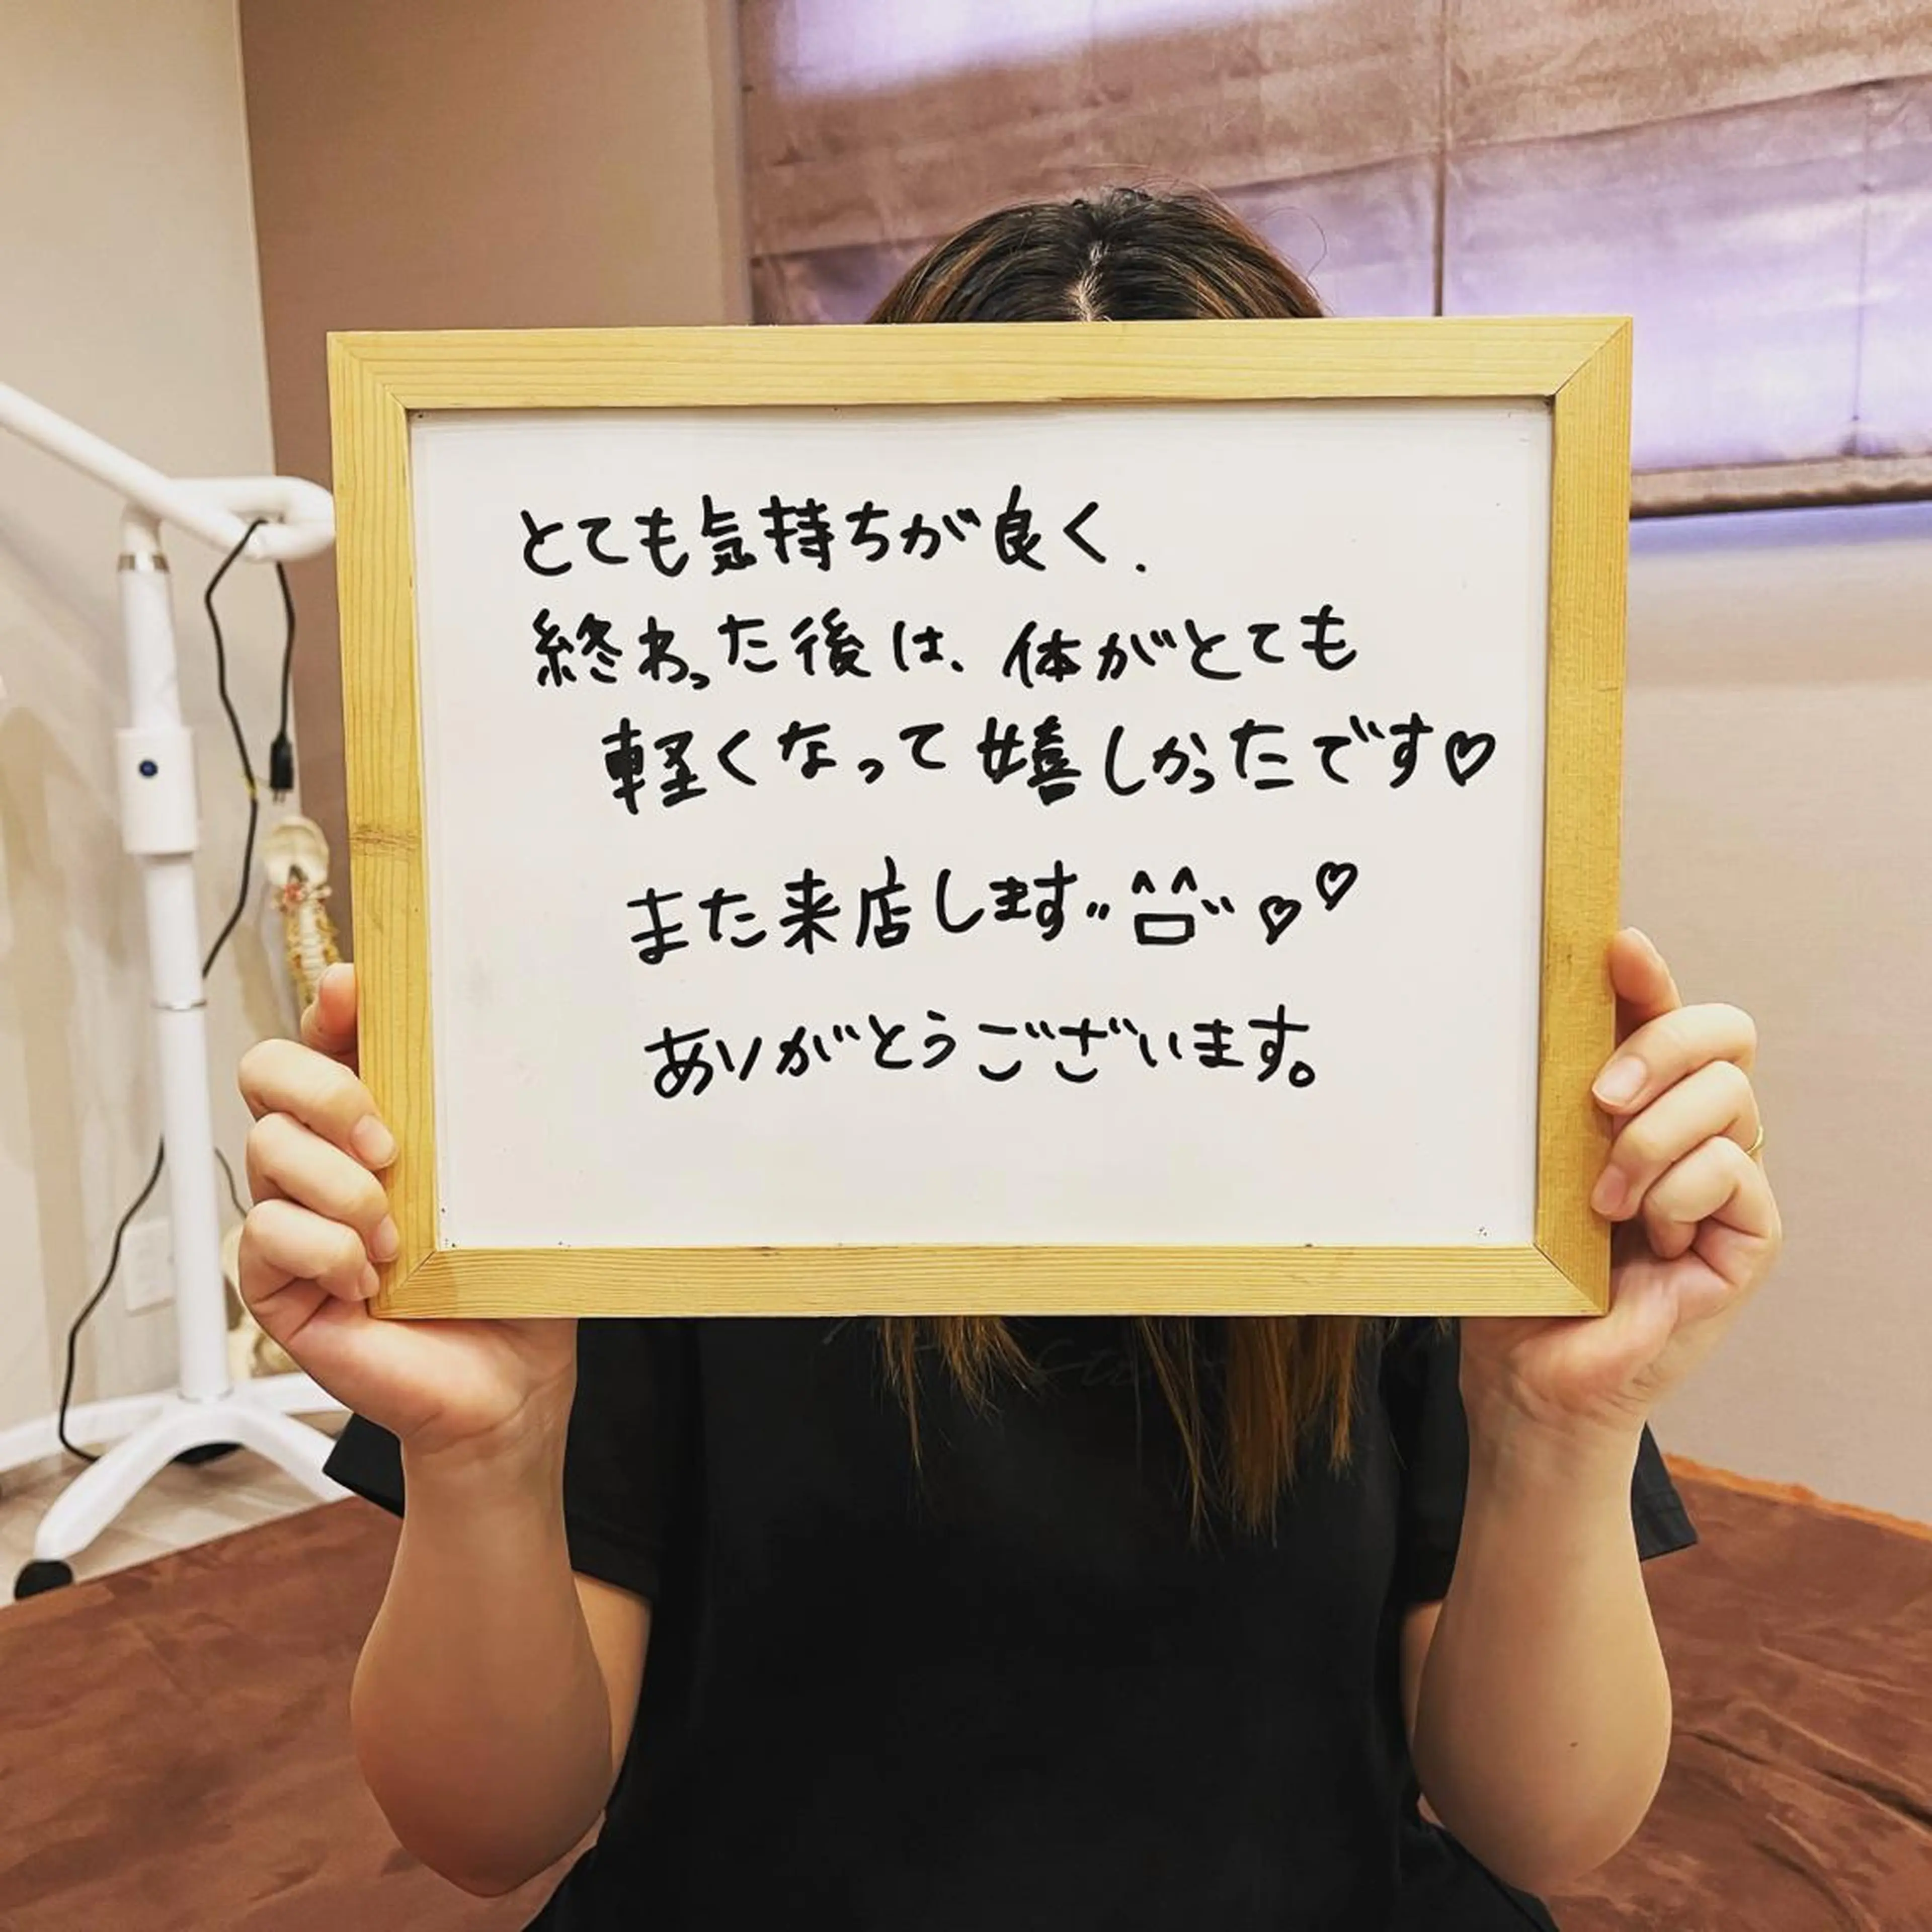 とても気持ちが良く.
終わった後は、体がとても
軽くなって嬉しかったです♡
また来店します〃^^ロ〃♡♡
ありがとうございます。